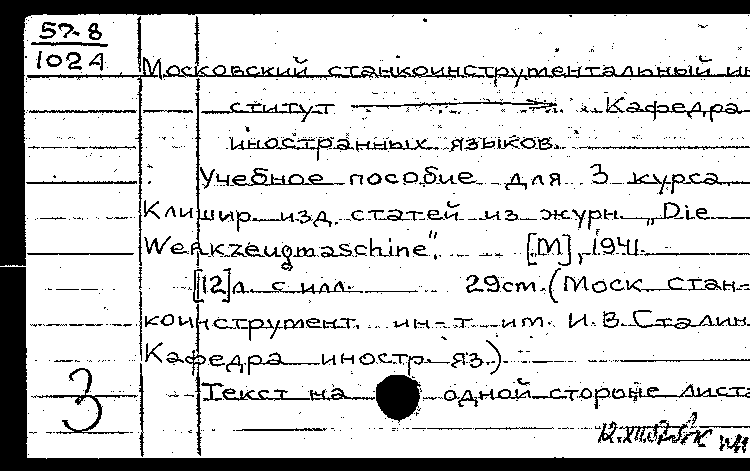 57-8
102A
Московский станкоинструментальный ин
ститут Кафедра
иностранных языков.
Учебное пособие для 3 курса
Клишир. изд. статей из журн. „Die
Werkzeugmaschine“. [М], 1941.
[12]л. с илл. 29cm. (Моск. стан-
коинструмент. ин-т им. И.В. Сталин
Кафедра иностр. яз.)
Текст на одной стороне листа
3